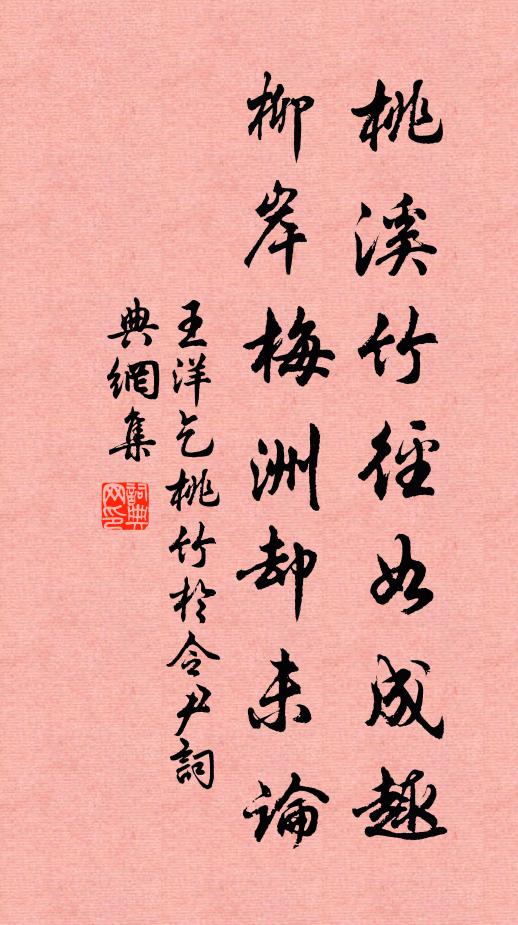 桃溪竹徑如成趣
柳岸梅洲却未論
王洋乞桃竹於令尹詞
典網集
詞典
网印